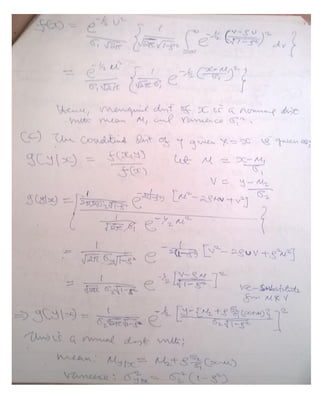 f(x) = e^{-½ U²} / σ₁√2π { 1/(√2π √1-ρ²) ∫ e^{-½ ((v-ρu)/√1-ρ²)²} dv }
= e^{-½ u²} / σ₁√2π
Hence, marginal dist of x is a normal dist
with mean M₁ and variance σ₁².
(C) The conditional dist of y given x=x is given by
g(y|x) = f(x,y) / f(x) let u = x-M₁ / σ₁
V = y-M₂ / σ₂
g(y|x) = [u² - 2ρuv + v²] / 1/(√2π σ₁) e^{-½ u²}
= 1/(√2π σ₂√1-ρ²) e [v² - 2ρuv + ρ²u²]
= 1/(√2π σ₂√1-ρ²) e^{-½ [(v-ρu)/√1-ρ²]²}
re-substitute
for u & v
⇒ g(y|x) = 1/(σ₂√2π √1-ρ²) e^{-½ [(y-{M₂+ρ σ₂/σ₁ (x-M₁)})/(σ₂√1-ρ²)]²}
This is a normal dist with;
mean: M_{y/x} = M₂ + ρ σ₂/σ₁ (x-M₁)
variance: σ²_{y/x} = σ₂² (1-ρ²)